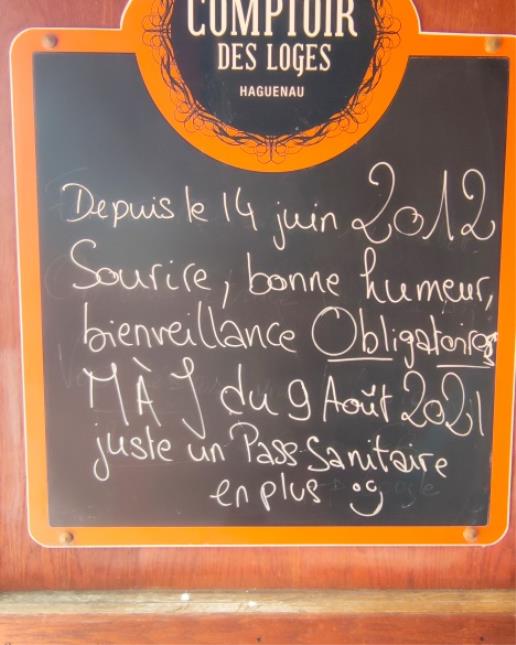 COMPTOIR
DES LOGES
HAGUENAU
Depuis le 14 juin 2012
Sourire, bonne humeur,
bienveillance Obligatoires
MÀJ du 9 Août 2021
juste un Pass Sanitaire
en plus